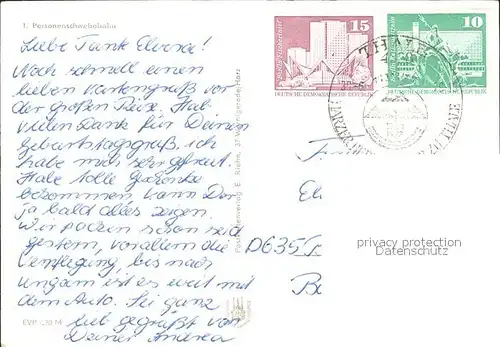 1. Personenschwebebahn
Liebe Tante Elvera!
Noch schnell einen
lieben Kartengruß vor
der großen Reise. Hab
vielen Dank für Deinen
Geburtstagsgruß, ich
habe mich sehr gefreut.
Habe tolle Geschenke
bekommen, kann Dir
ja bald alles zeigen.
Wir packen schon seit
gestern, vor allem die
Verpflegung, bis nach
Ungarn ist es weit mit
dem Auto. Sei ganz
lieb gegrüßt von
Deiner Andrea
EVP
M
15
Berlin, Fischerinsel
DEUTSCHE DEMOKRATISCHE REPUBLIK
10
DEUTSCHE DEMOKRATISCHE REPUBLIK
THALE
El
D 635
privacy protection
Datenschutz